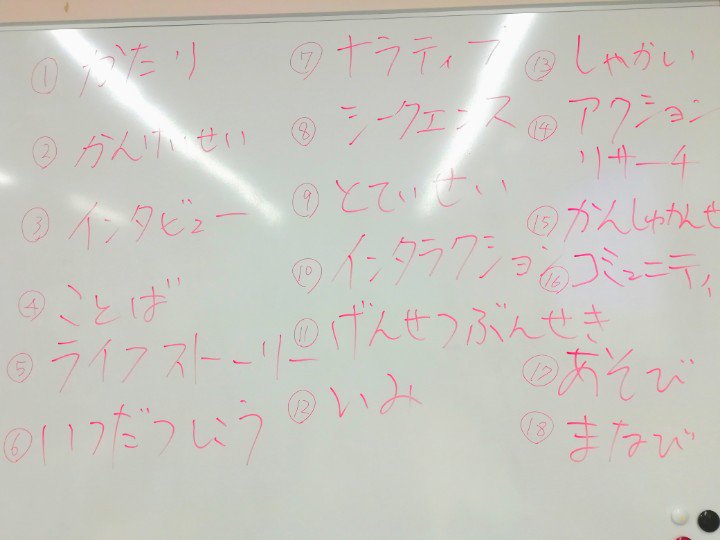 ① かたり
② かんけいせい
③ インタビュー
④ ことば
⑤ ライフストーリー
⑥
⑦ ナラティブ
⑧ シークエンス
⑨ とていせい
⑩ インタラクション
⑪ げんせつぶんせき
⑫ いみ
⑬ しゃかい
⑭ アクション
リサーチ
⑮ かんしゅかんせ
⑯ コミュニティ
⑰ あそび
⑱ まなび